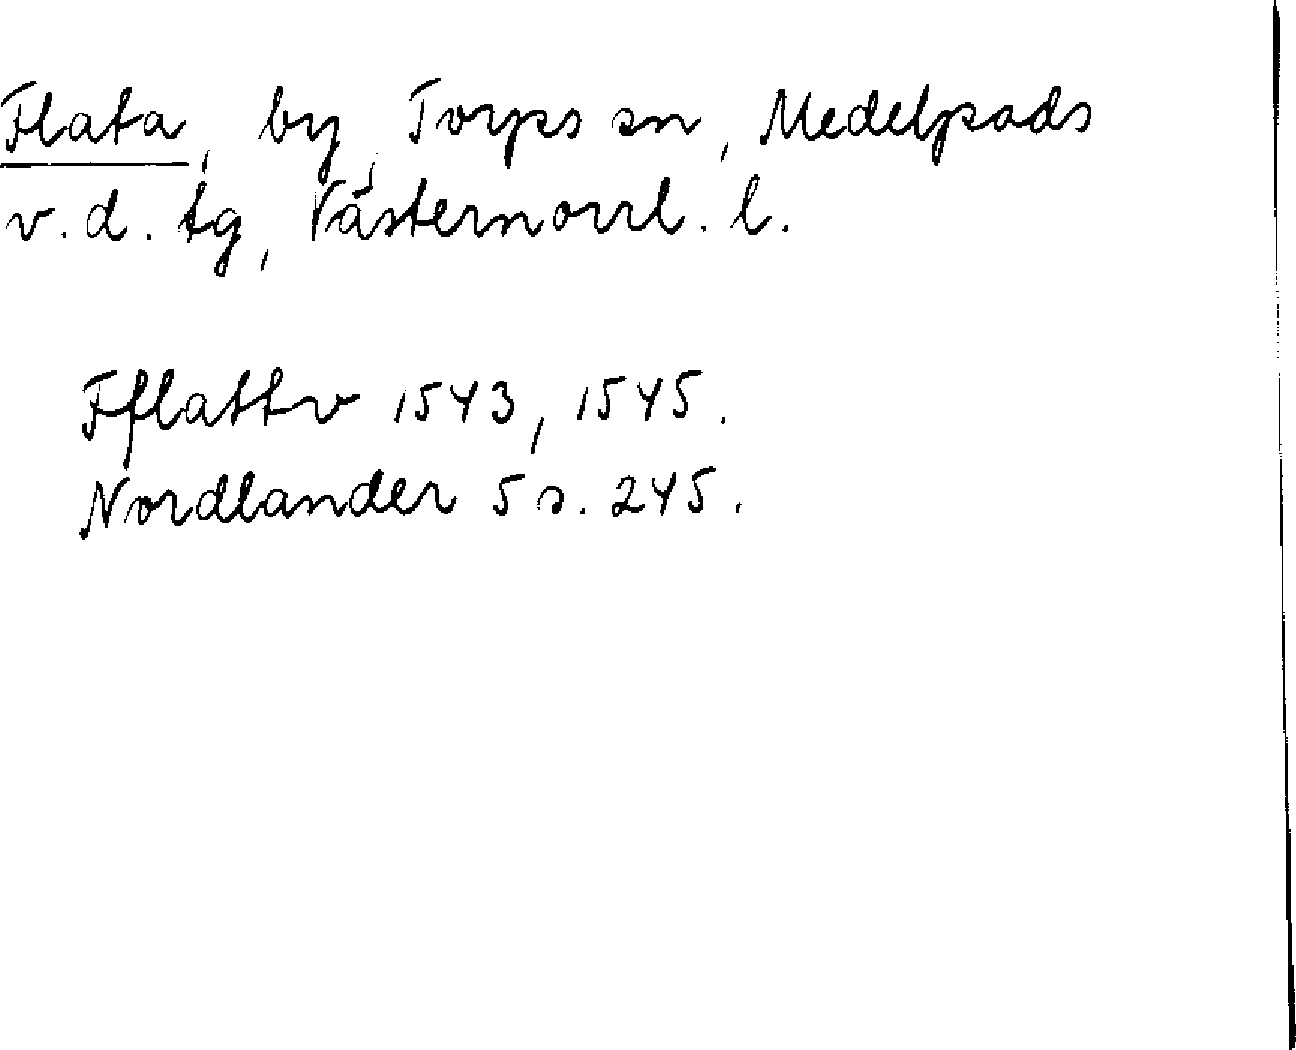 Flata, by, Torps sn, Medelpads
v. d. tg, Västernorrl. l.
Fflattv 1543, 1545.
Nordlander 5 s. 245.